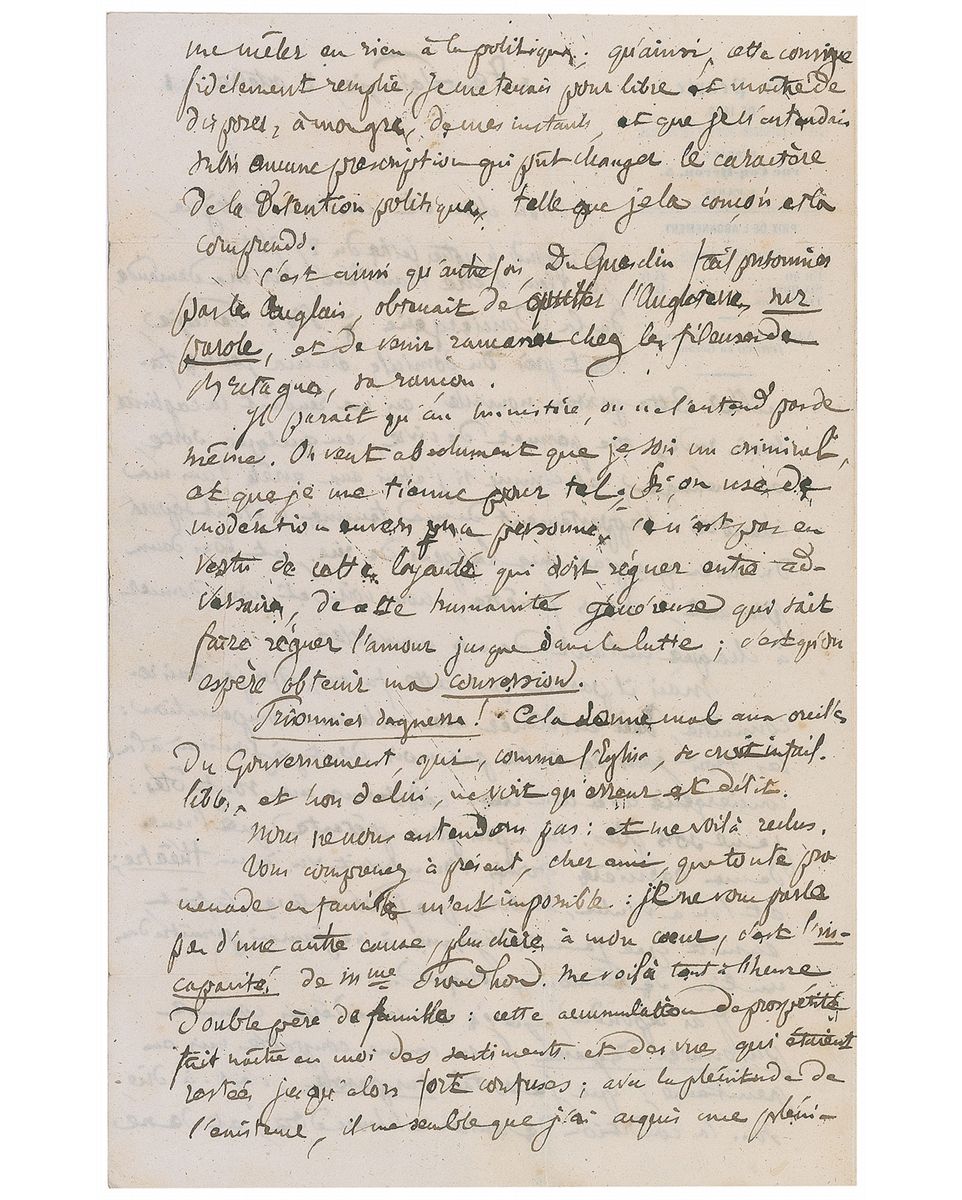 me mêler en rien à la politique ; qu'ainsi, cette consigne
fidèlement remplie, je me tenais pour libre et maître de
disposer, à mon gré, de mes instants, et que je n'entendais
subir aucune prescription qui pût changer le caractère
de la Détention politique, telle que je la conçois et la
comprends.
C'est ainsi qu'autrefois Du Guesclin fait prisonnier
par les Anglais, obtenait de quitter l'Angleterre, sur
parole, et de venir ramasser chez les fileuses de
Bretagne, sa rançon.
Il paraît qu'au ministère, on ne l'entend pas de
même. On veut absolument que je sois un criminel,
et que je me tienne pour tel ; Si on use de
modération envers ma personne, ce n'est pas en
vertu de cette loyauté qui doit régner entre ad-
versaires, de cette humanité généreuse qui sait
faire régner l'amour jusque dans la lutte ; c'est qu'on
espère obtenir ma conversion.
Prisonnier de guerre ! Cela sonne mal aux oreilles
du Gouvernement, qui, comme l'Eglise, se croit infail-
lible, et hors de lui, ne voit qu'erreur et délit.
Nous ne nous entendons pas : et me voilà reclus.
Vous comprenez à présent, cher ami, que toute pro
menade en famille m'est impossible : je ne vous parle
pas d'une autre cause, plus chère à mon cœur, c'est l'in-
capacité de Mme Proudhon. Me voilà tout à l'heure
double père de famille : cette accumulation de prospérité
fait naître en moi des sentiments et des vues qui étaient
restés jusqu'alors fort confuses ; avec la plénitude de
l'existence, il me semble que j'ai acquis une pléni-